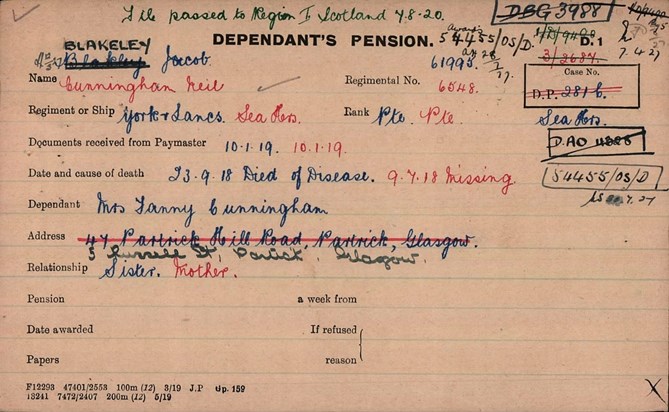 File passed to Region I Scotland 7.8.20.
DBG 3988
DEPENDANT'S PENSION. 54455/OS/D. D.1
BLAKELEY
Blakeley Jacob. 61993. 3/2687.
Name Cunningham Neil Regimental No. 6548. Case No.
D.P. 2816.
Regiment or Ship York & Lancs. Sea Hrs. Rank Pte. Pte. Sea Hrs.
Documents received from Paymaster 10.1.19. 10.1.19. D.AO 4828
Date and cause of death 23.9.18 Died of Disease. 9.7.18 Missing 54455/OS/D
Dependant Mrs Fanny Cunningham
Address 47 Partrick Hill Road, Partrick, Glasgow.
5 Russell St, Partick, Glasgow.
Relationship Sister. Mother.
Pension a week from
Date awarded If refused
Papers reason
F12293 47401/2553 100m (12) 3/19 J.P Gp. 152
13241 7472/2407 200m (12) 5/19
X